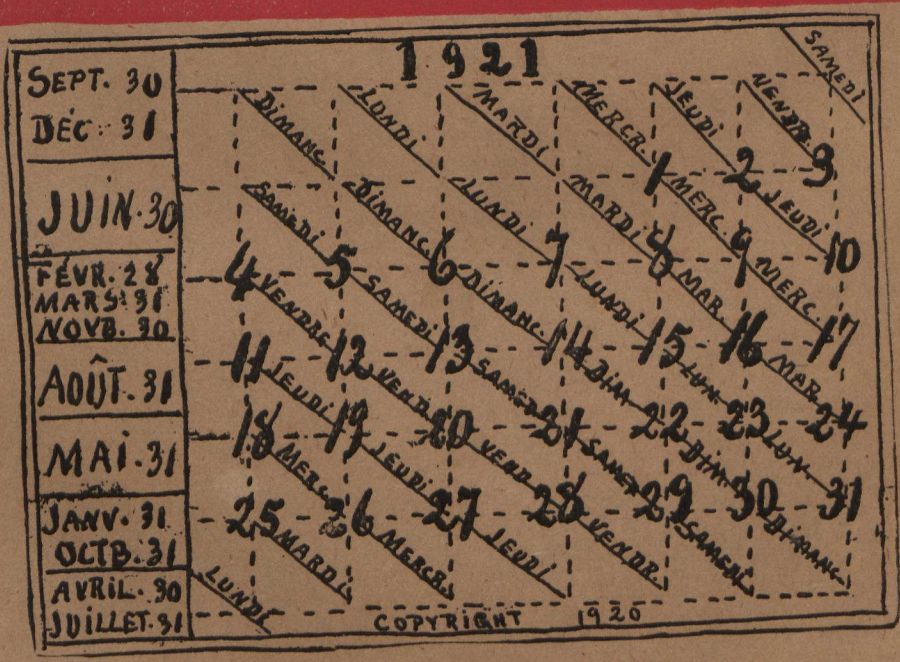 1921
SEPT. 30
DÉC. 31
JUIN. 30
FÉVR. 28
MARS. 31
NOVB. 30
AOÛT. 31
MAI. 31
JANV. 31
OCTB. 31
AVRIL. 30
JUILLET. 31
DIMANC. LUNDI MARDI MERCR. JEUDI VENDR. SAMEDI
1 2 3
SAMEDI DIMANC. LUNDI MARDI MERC. JEUDI
4 5 6 7 8 9 10
VENDRE SAMEDI DIMANC. LUNDI MAR. MERC.
11 12 13 14 15 16 17
JEUDI VEND. SAMED. DIM LUN. MAR.
18 19 20 21 22 23 24
MERC. JEUDI VEND. SAMED. DIM. LUN.
25 26 27 28 29 30 31
LUNDI MARDI. MERCR. JEUDI VENDR. SAMEDI DIMANC.
COPYRIGHT 1920